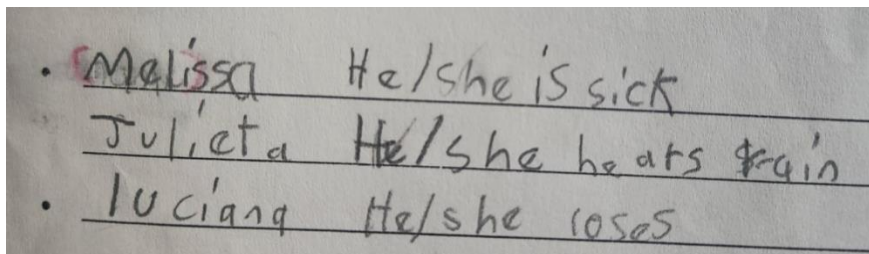 • Melissa He/she is sick
Julieta He/she hears train
• luciana He/she loses